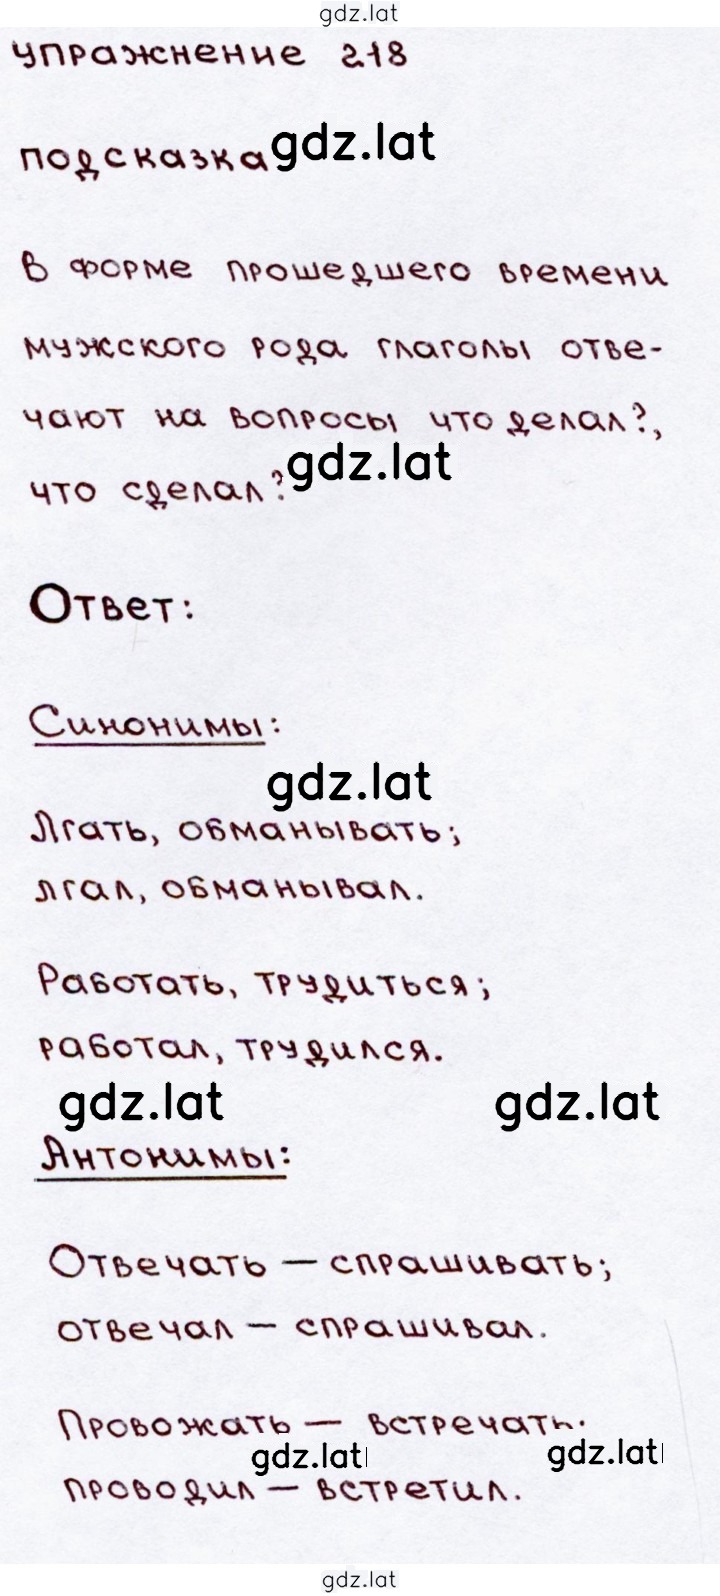 gdz.lat
упражнение 218
подсказка gdz.lat
В форме прошедшего времени
мужского рода глаголы отве-
чают на вопросы что делал?,
что сделал? gdz.lat
Ответ:
Синонимы:
gdz.lat
Лгать, обманывать;
лгал, обманывал.
Работать, трудиться;
работал, трудился.
gdz.lat gdz.lat
Антонимы:
Отвечать – спрашивать;
отвечал – спрашивал.
Провожать – встречать;
gdz.lat gdz.lat
проводил – встретил.
gdz.lat